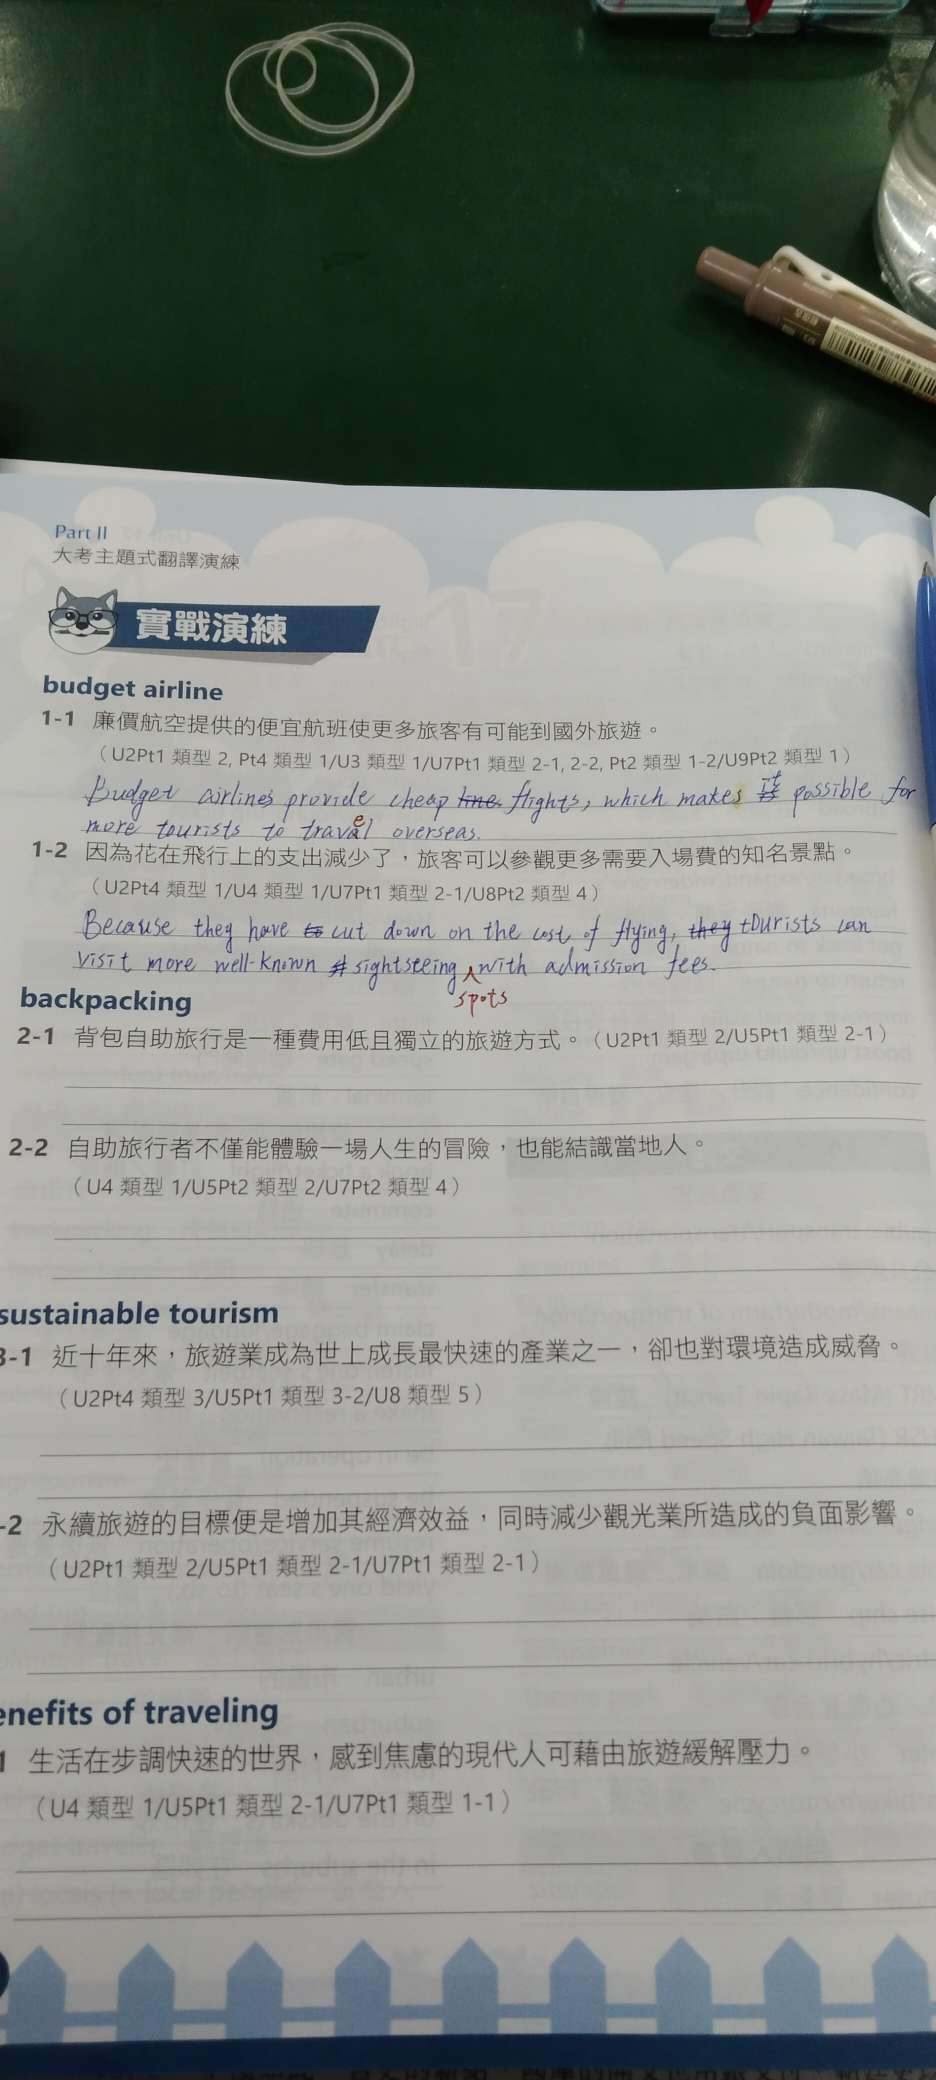 Part II
大考主題式翻譯演練
實戰演練
budget airline
1-1 廉價航空提供的便宜航班使更多旅客有可能到國外旅遊。
(U2Pt1 類型 2, Pt4 類型 1/U3 類型 1/U7Pt1 類型 2-1, 2-2, Pt2 類型 1-2/U9Pt2 類型 1)
Budget airlines provide cheap flights, which makes it possible for
more tourists to travel overseas.
1-2 因為花在飛行上的支出減少了，旅客可以參觀更多需要入場費的知名景點。
(U2Pt4 類型 1/U4 類型 1/U7Pt1 類型 2-1/U8Pt2 類型 4)
Because they have cut down on the cost of flying, tourists can
visit more well-known sightseeing with admission fees.
spots
backpacking
2-1 背包自助旅行是一種費用低且獨立的旅遊方式。(U2Pt1 類型 2/U5Pt1 類型 2-1)
2-2 自助旅行者不僅能體驗一場人生的冒險，也能結識當地人。
(U4 類型 1/U5Pt2 類型 2/U7Pt2 類型 4)
sustainable tourism
3-1 近十年來，旅遊業成為世上成長最快速的產業之一，卻也對環境造成威脅。
(U2Pt4 類型 3/U5Pt1 類型 3-2/U8 類型 5)
-2 永續旅遊的目標便是增加其經濟效益，同時減少觀光業所造成的負面影響。
(U2Pt1 類型 2/U5Pt1 類型 2-1/U7Pt1 類型 2-1)
enefits of traveling
1 生活在步調快速的世界，感到焦慮的現代人可藉由旅遊緩解壓力。
(U4 類型 1/U5Pt1 類型 2-1/U7Pt1 類型 1-1)